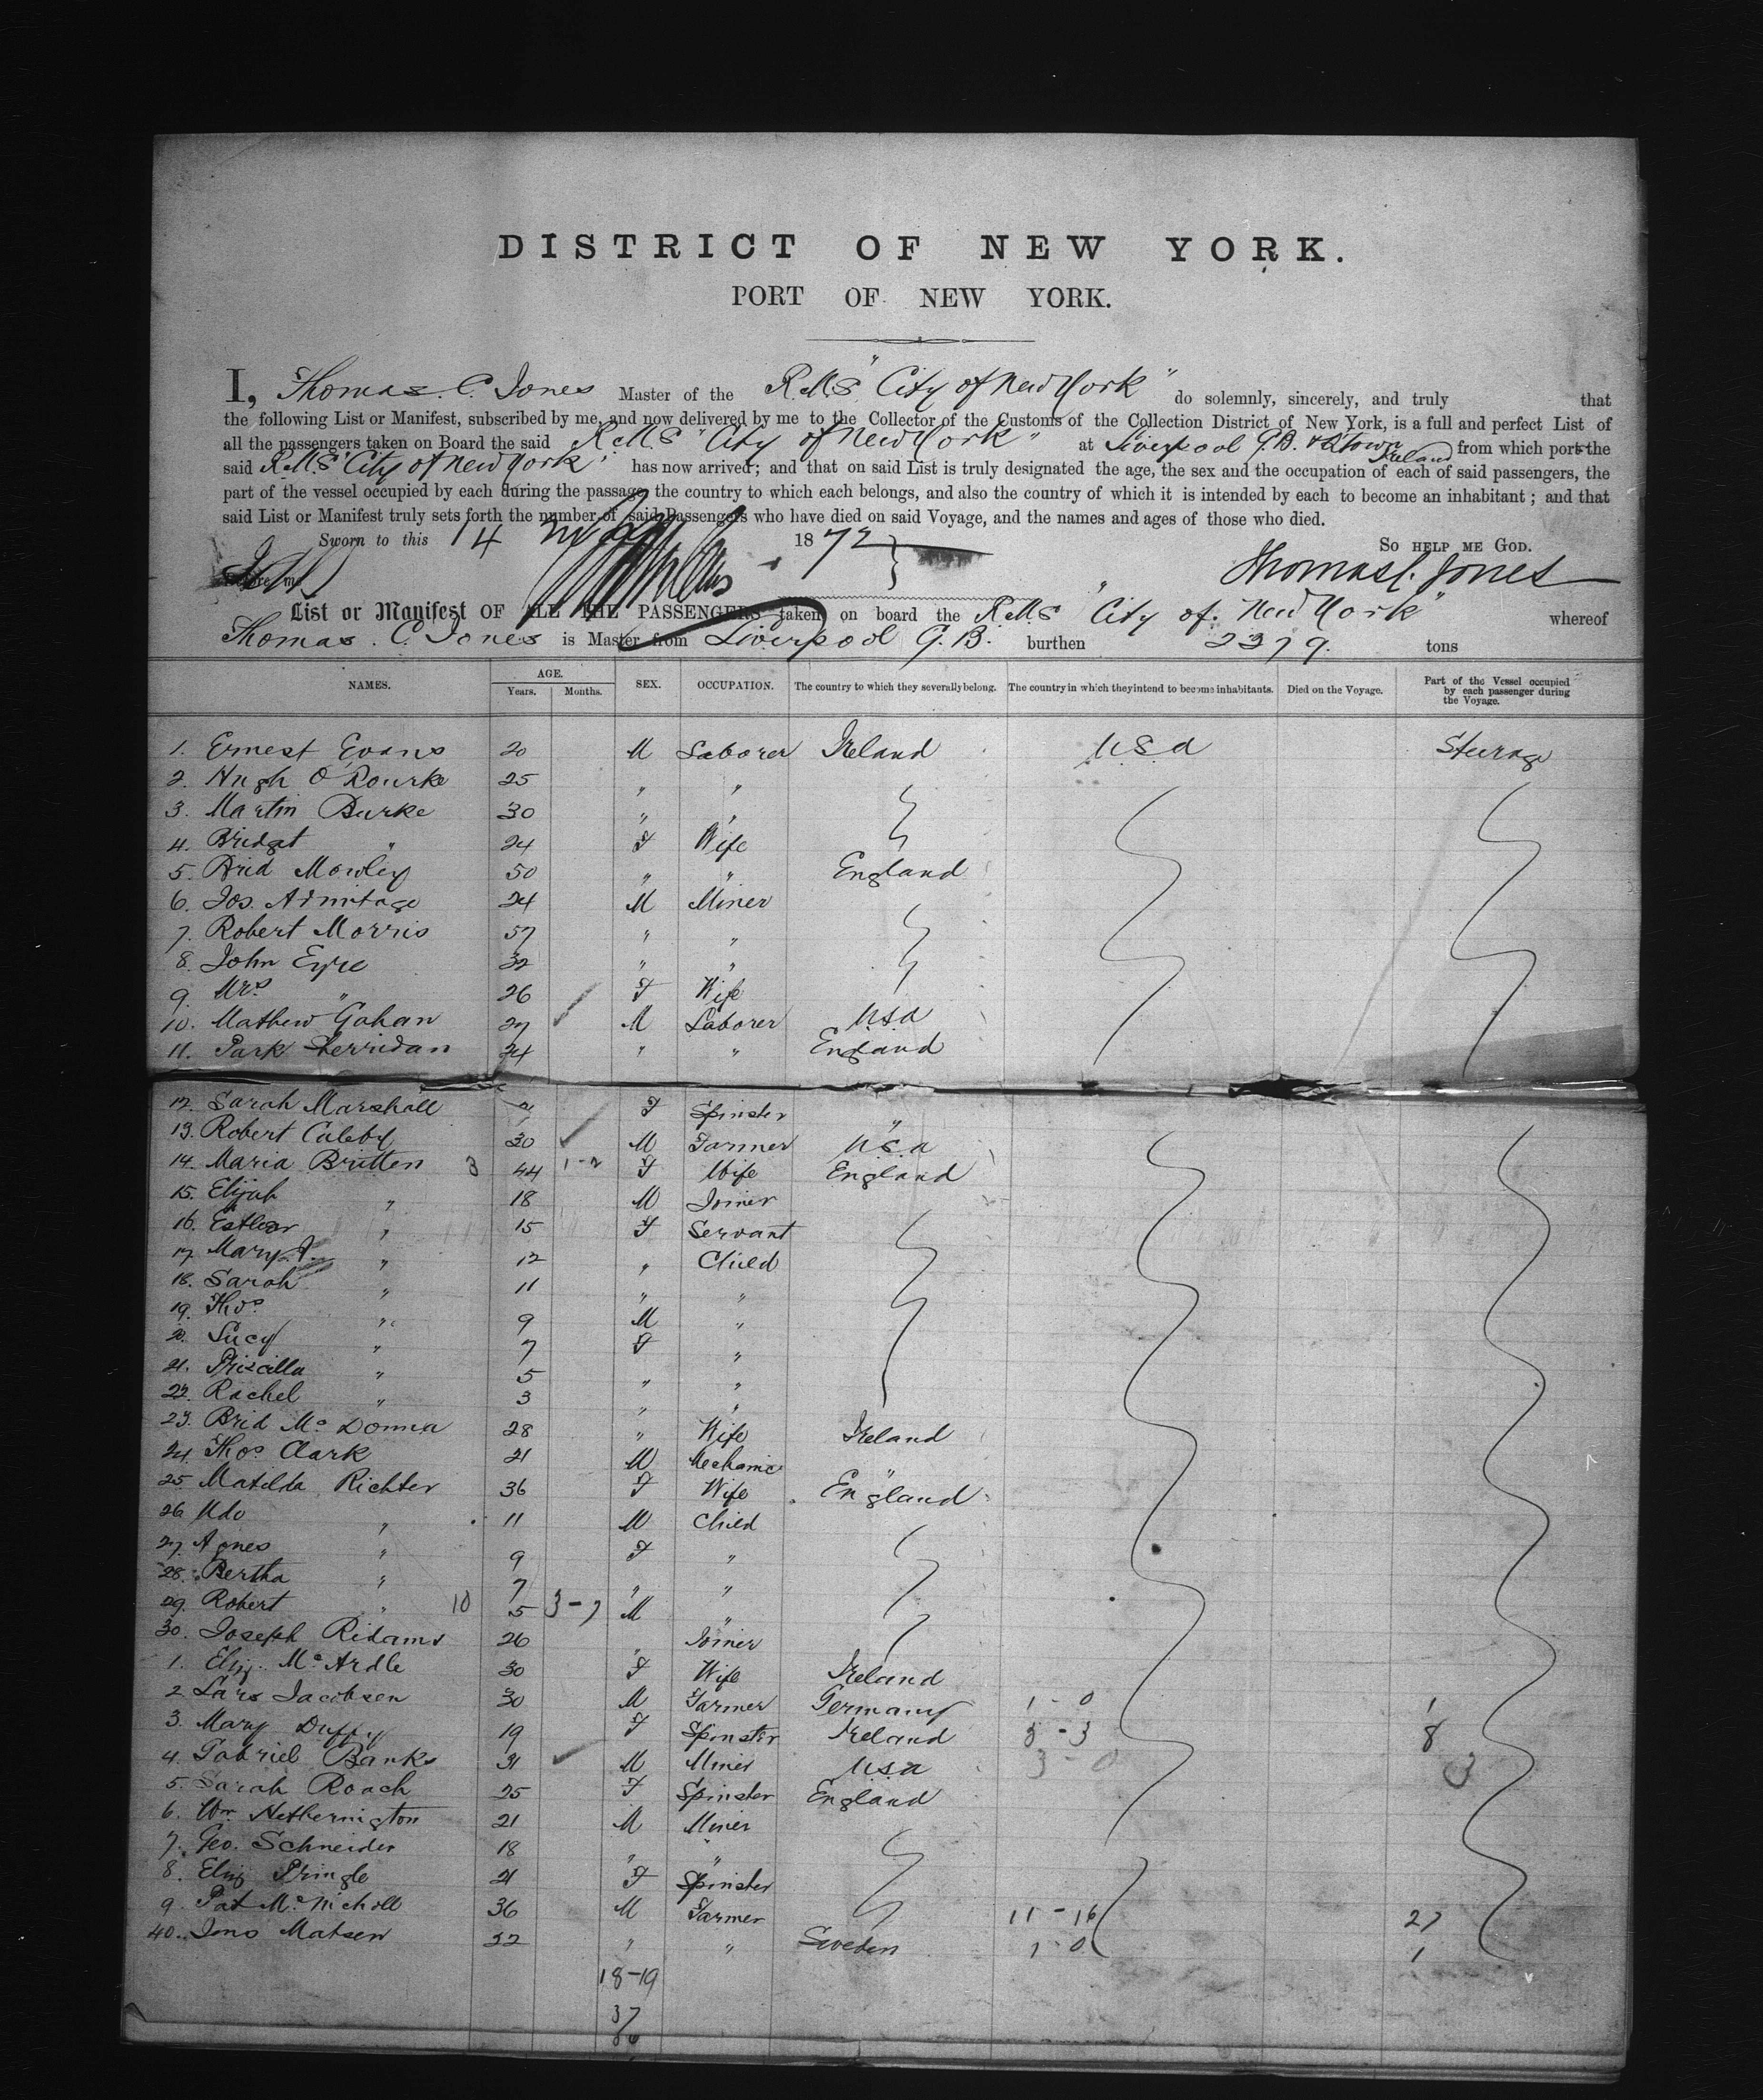 DISTRICT OF NEW YORK.
PORT OF NEW YORK.
I, Thomas. C. Jones Master of the R.M.S. "City of New York" do solemnly, sincerely, and truly that
the following List or Manifest, subscribed by me, and now delivered by me to the Collector of the Customs of the Collection District of New York, is a full and perfect List of
all the passengers taken on Board the said R.M.S "City of New York" at Liverpool G.B. & Qtown Ireland from which ports the
said R.M.S "City of New York" has now arrived; and that on said List is truly designated the age, the sex and the occupation of each of said passengers, the
part of the vessel occupied by each during the passage, the country to which each belongs, and also the country of which it is intended by each to become an inhabitant; and that
said List or Manifest truly sets forth the number of said Passengers who have died on said Voyage, and the names and ages of those who died.
Sworn to this 14 1872 So help me God.
Before me Thomas C. Jones
List or Manifest OF ALL THE PASSENGERS taken on board the R.M.S "City of New York" whereof
Thomas. C. Jones is Master from Liverpool G.B. burthen 2379. tons
NAMES. AGE. Years. Months. SEX. OCCUPATION. The country to which they severally belong. The country in which they intend to become inhabitants. Died on the Voyage. Part of the Vessel occupied by each passenger during the Voyage.
1. Ernest Evans 20 M Laborer Ireland U.S.a Steerage
2. Hugh O'Rourke 25 " "
3. Martin Burke 30 " "
4. Bridget " 24 F Wife
5. Brid Mowley 50 " " England
6. Jos. Armitage 24 M Miner
7. Robert Morris 57 " "
8. John Eyre 32 " "
9. Mrs " 26 F Wife
10. Mathew Gahan 27 M Laborer U.S.a
11. Park Sherridan 24 " " England
12. Sarah Marshall F Spinster "
13. Robert Caleby 30 M Farmer U.S.a
14. Maria Britten 3 44 1-2 F Wife England
15. Elijah " 18 M Joiner
16. Esther " 15 F Servant
17. Mary J. " 12 " Child
18. Sarah " 11 " "
19. Thos " 9 M "
20. Lucy " 7 F "
21. Priscilla " 5 " "
22. Rachel " 3 " "
23. Brid Mc Donna 28 " Wife Ireland
24. Thos Clark 21 M Mechanic "
25. Matilda Richter 36 F Wife England
26. Udo " 11 M Child
27. Agnes " 9 F "
28. Bertha " 7 " "
29. Robert " 10 5 3-7 M "
30. Joseph Ridams 26 " Joiner
1. Eliz. McArdle 30 F Wife Ireland
2. Lars Jacobsen 30 M Farmer Germany 1-0 1
3. Mary Duffy 19 F Spinster Ireland 5-3 8
4. Gabriel Banks 31 M Miner U.S.a 3-0 3
5. Sarah Roach 25 F Spinster England
6. Wm Hethernigton 21 M Miner
7. Geo. Schneider 18 " "
8. Eliz Pringle 21 F Spinster
9. Pat McNicholl 36 M Farmer 11-16 27
40. Jons Matsen 32 " " Sweden 1-0 1
18-19
37